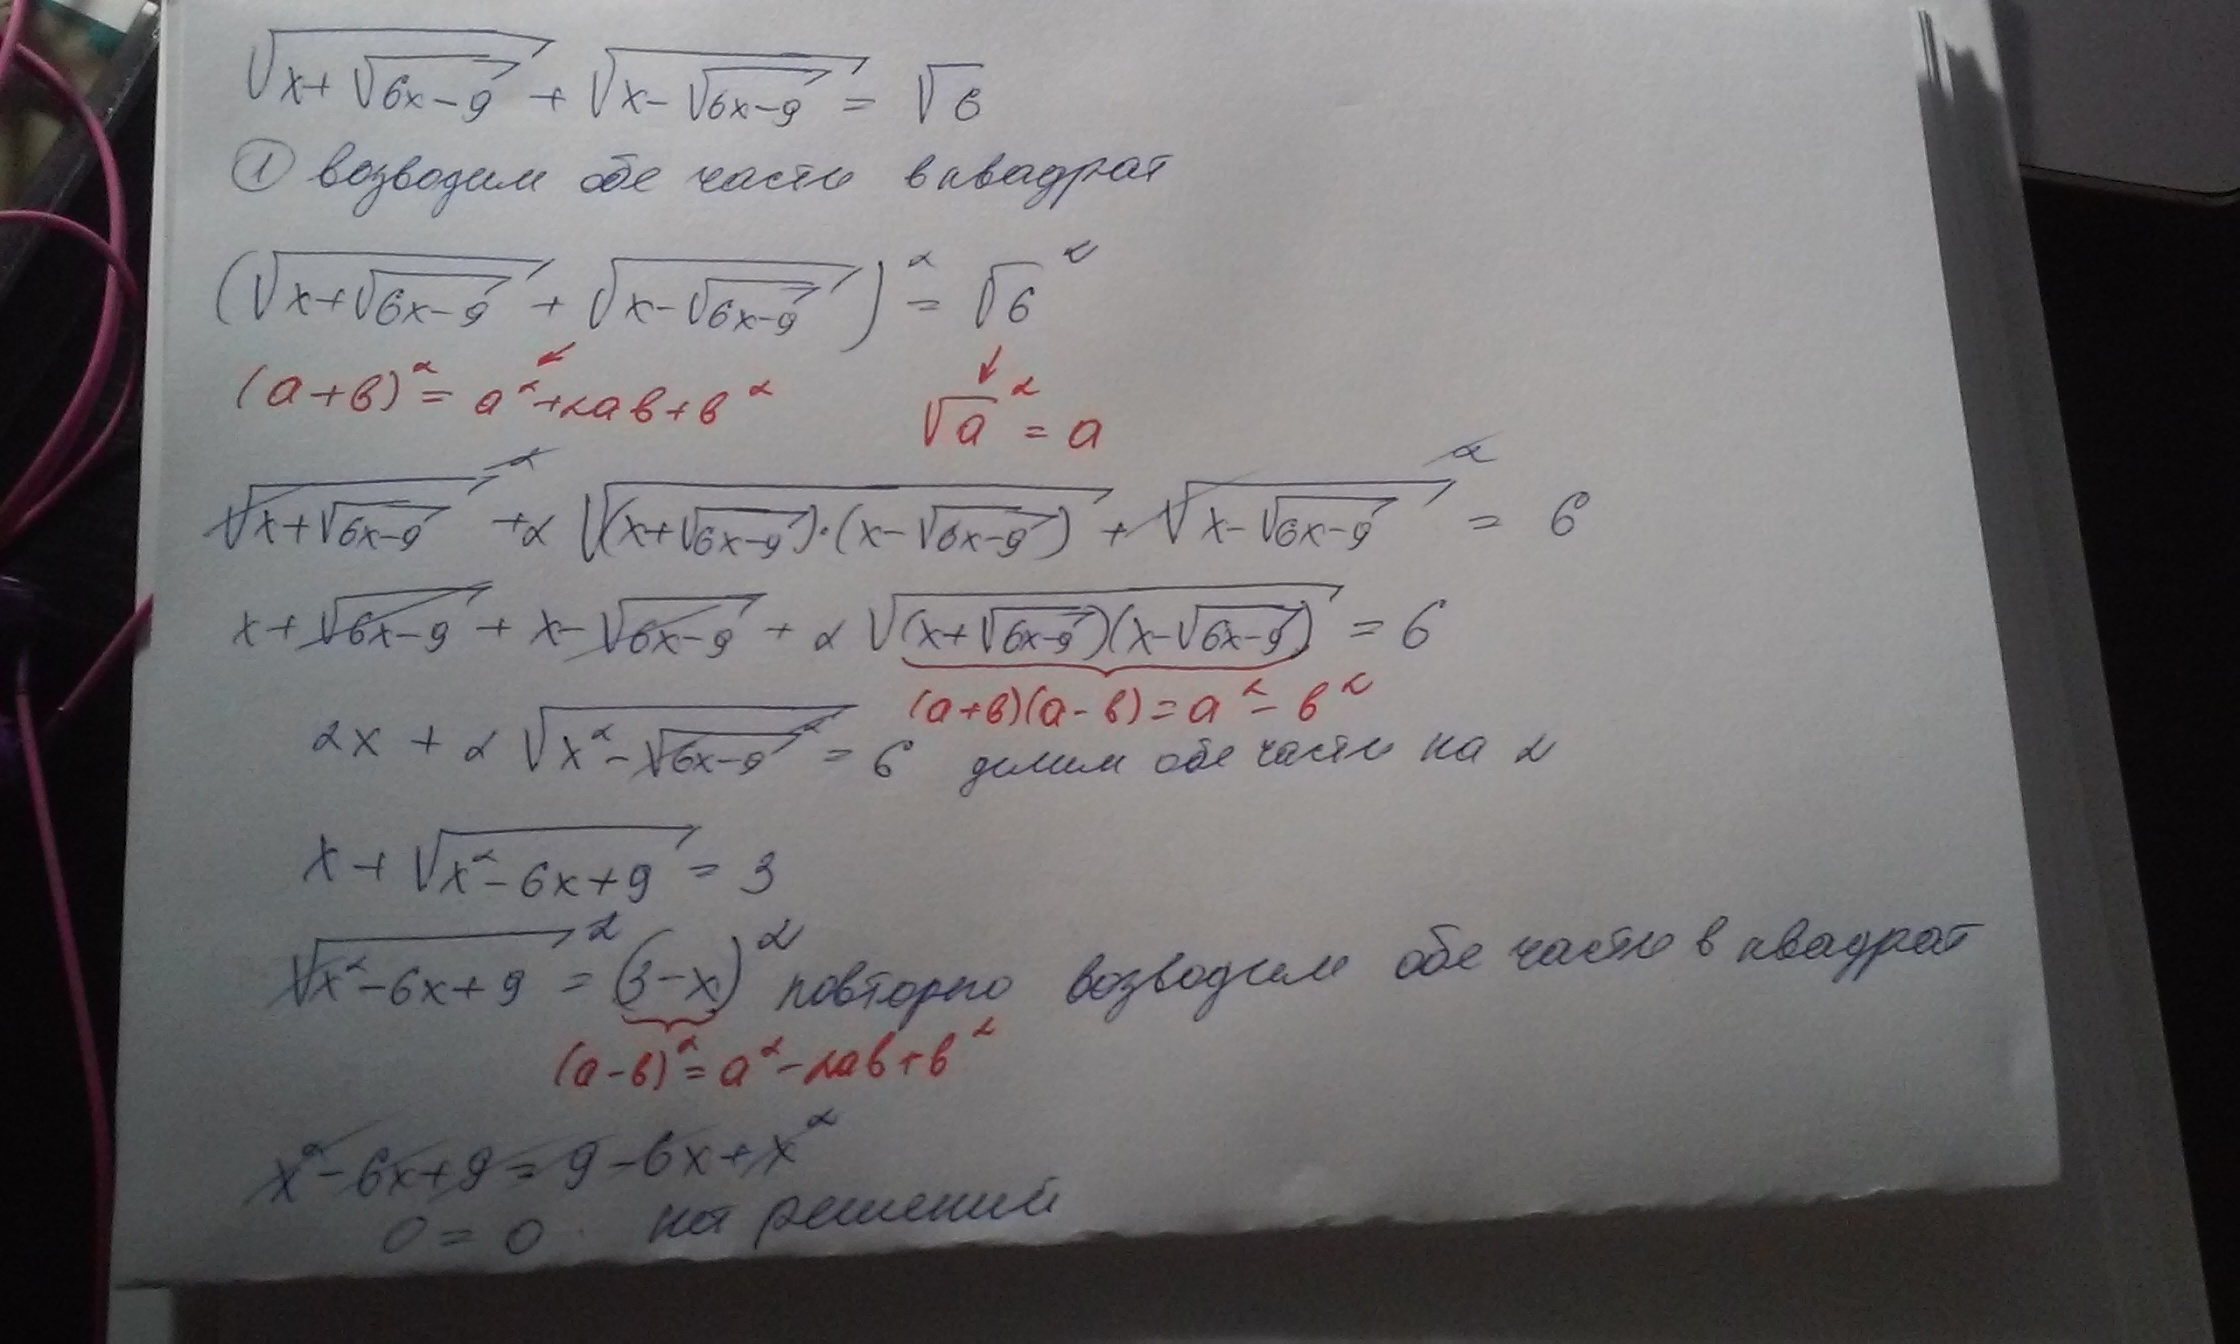 √(x+√(6x-9)) + √(x-√(6x-9)) = √6
① возводим обе части в квадрат
(√(x+√(6x-9)) + √(x-√(6x-9)))² = √6²
(a+b)² = a²+2ab+b² √a² = a
√(x+√(6x-9))² + 2√((x+√(6x-9))·(x-√(6x-9))) + √(x-√(6x-9))² = 6
x+√(6x-9) + x-√(6x-9) + 2√((x+√(6x-9))(x-√(6x-9))) = 6
(a+b)(a-b)=a²-b²
2x + 2√(x²-√(6x-9)²) = 6 делим обе части на 2
x+√(x²-6x+9) = 3
√(x²-6x+9)² = (3-x)² повторно возводим обе части в квадрат
(a-b)²=a²-2ab+b²
x²-6x+9=9-6x+x²
0=0. нет решений